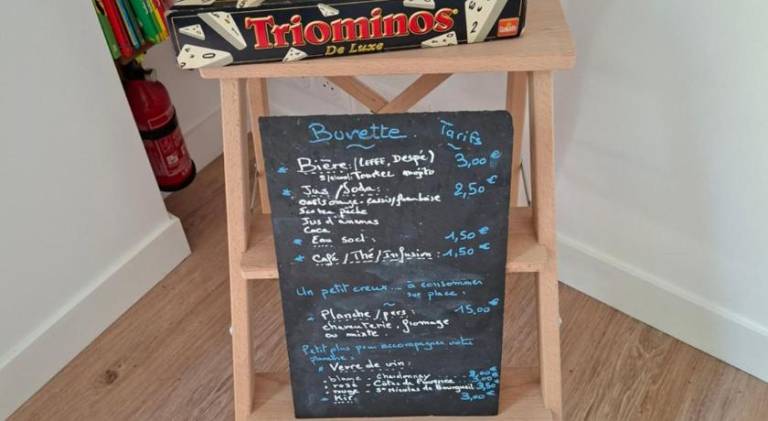 Triominos
De Luxe
Buvette Tarifs
Bière: (Leffe, Despé) 3,00€
Tourtel mojito
Jus / Soda: 2,50€
Oasis orange - cassis/framboise
Ice tea pêche
Jus d'ananas
Coca
Eau soct : 1,50€
Café / Thé / Infusion : 1,50€
Un petit creux... à consommer
sur place.
Planche / pers : 15,00€
charcuterie, fromage
ou mixte.
Petit plus pour accompagner votre
planche :
Verre de vin :
blanc - Chardonnay
rosé - Côtes de Provence
rouge - St Nicolas de Bourgueil 3,50€
Kir 3,00€